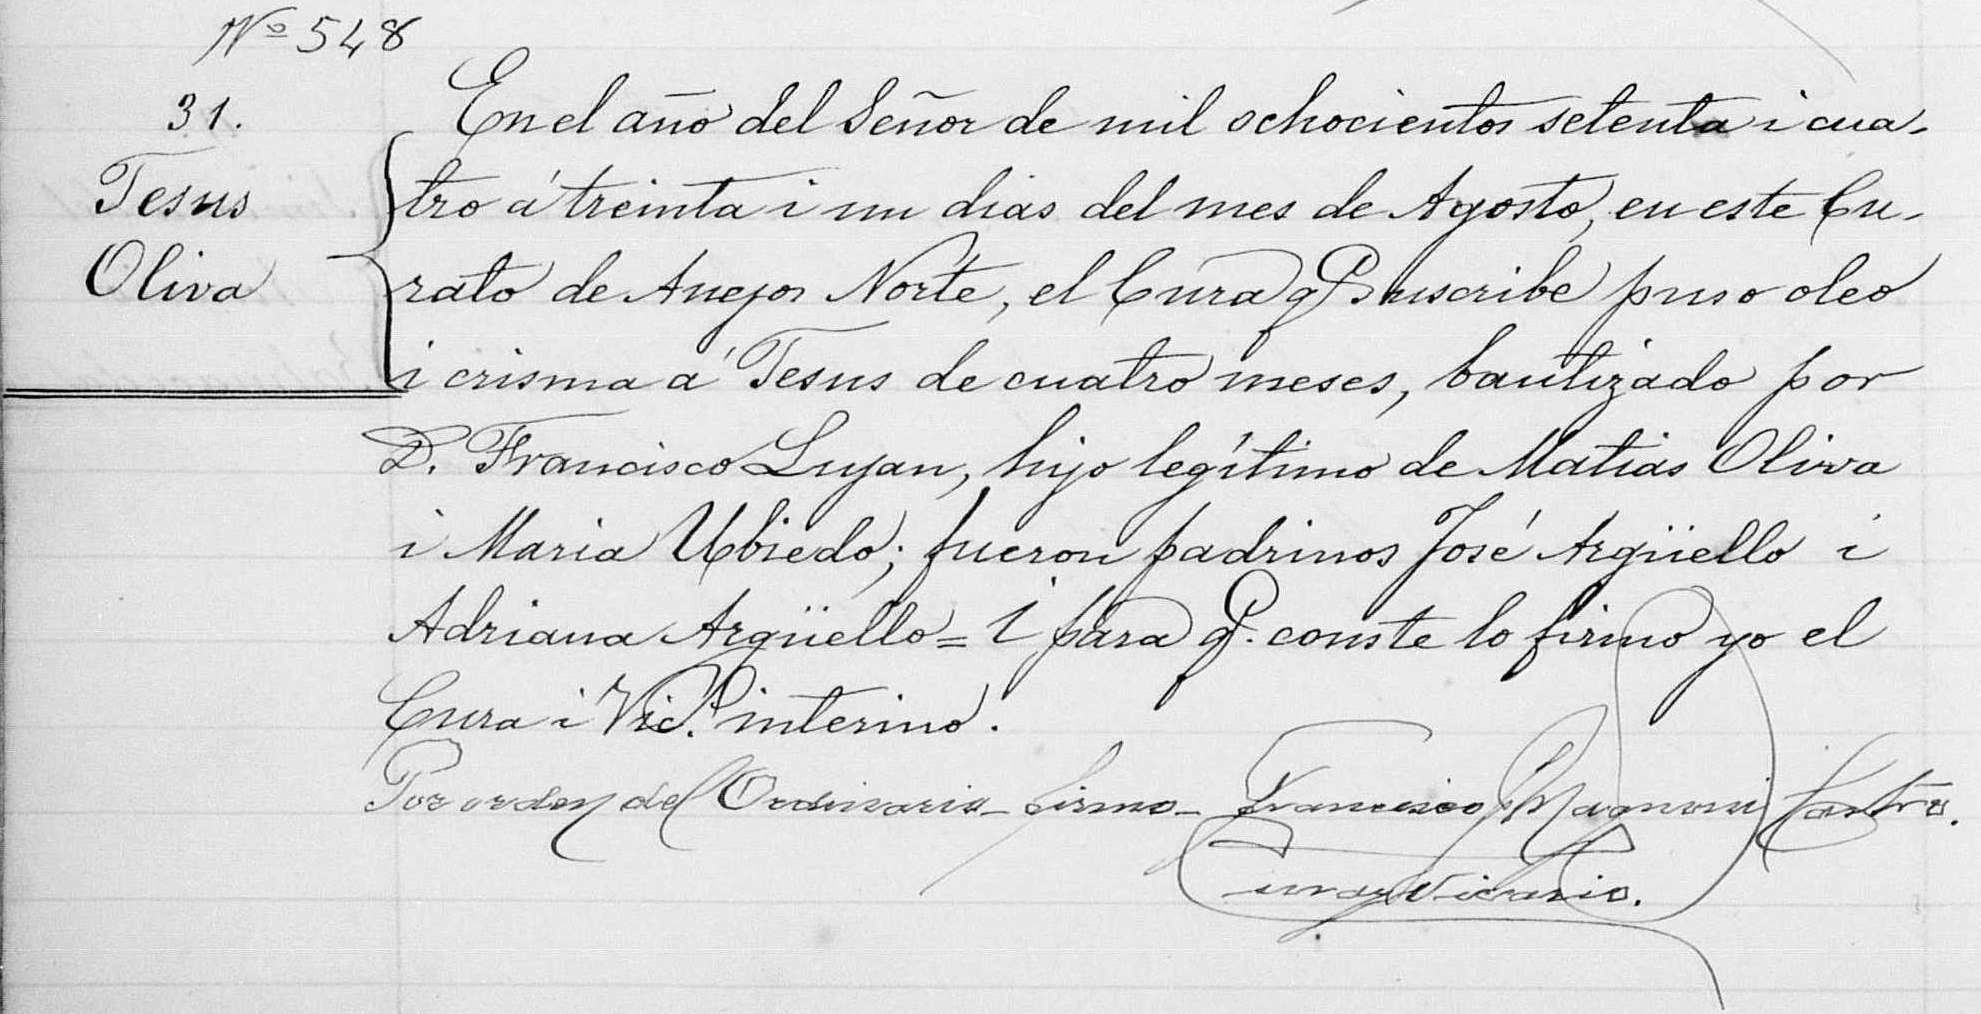 Nº 548
31.
Jesus
Oliva
En el año del Señor de mil ochocientos setenta i cua-
tro á treinta i un dias del mes de Agosto, en este Cu-
rato de Anejos Norte, el Cura q.e suscribe puso oleo
i crisma á Jesus de cuatro meses, bautizado por
D. Francisco Lujan, hijo legítimo de Matias Oliva
i Maria Ubiedo; fueron padrinos José Argüello i
Adriana Argüello = I para q.e conste lo firmo yo el
Cura i Vic.º interino.
Por orden del Ordinario - firmo - Francisco Magnoni Castro.
Cura y Vicario.